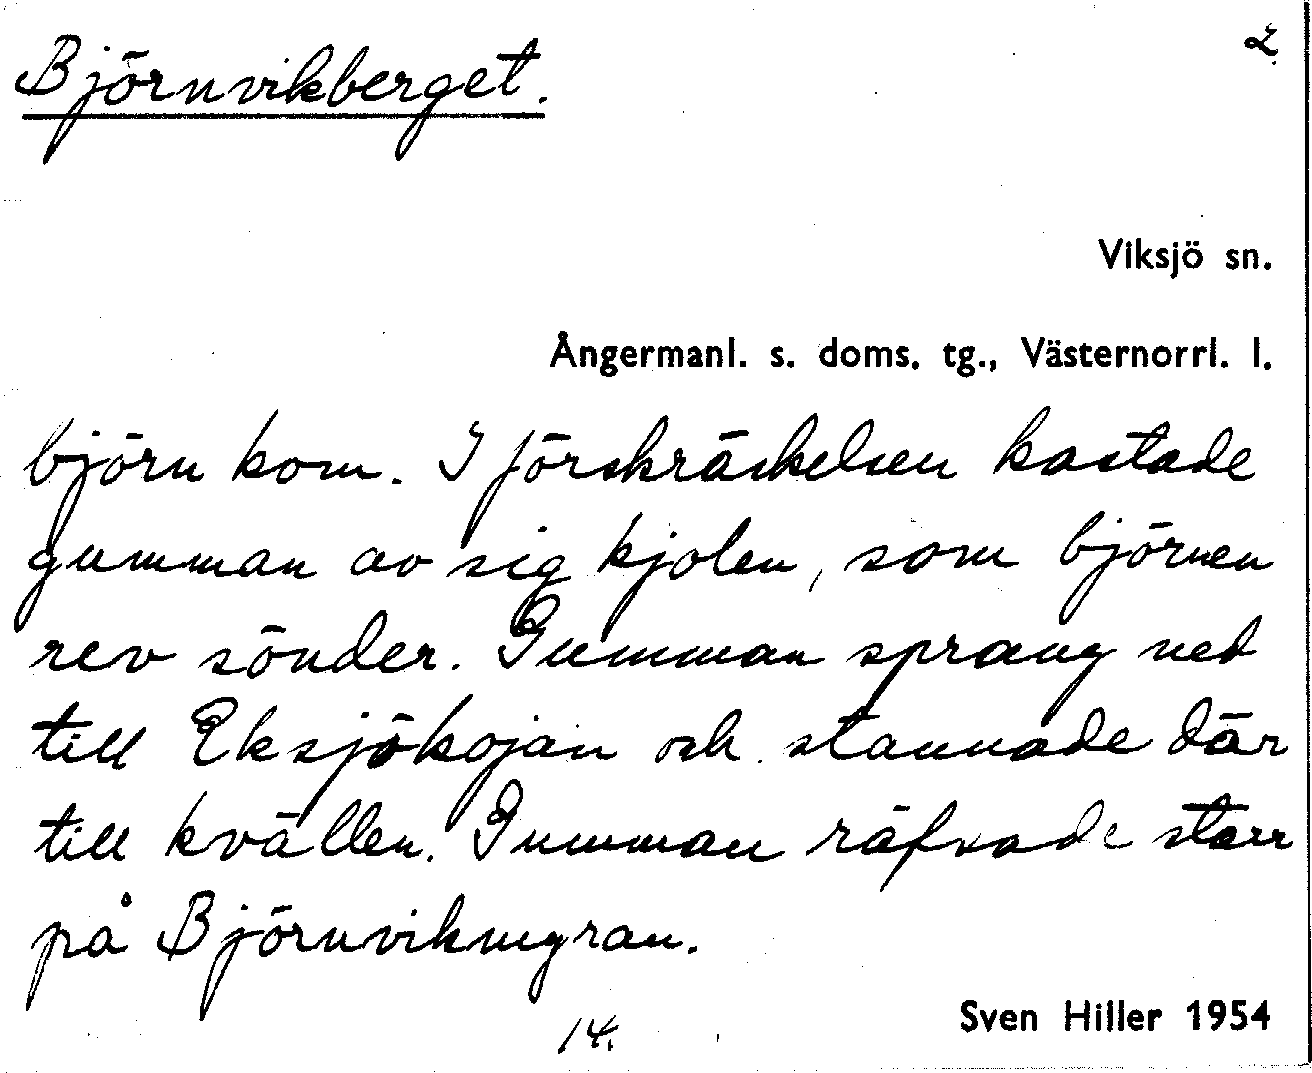 Björnvikberget.
2
Viksjö sn.
Ångermanl. s. doms. tg., Västernorrl. l.
björn kom. I förskräckelsen kastade
gumman av sig kjolen, som björnen
rev sönder. Gumman sprang ned
till Eksjökojan och stannade där
till kvällen. Gumman räfsade starr
på Björnvikmyran.
14.
Sven Hiller 1954